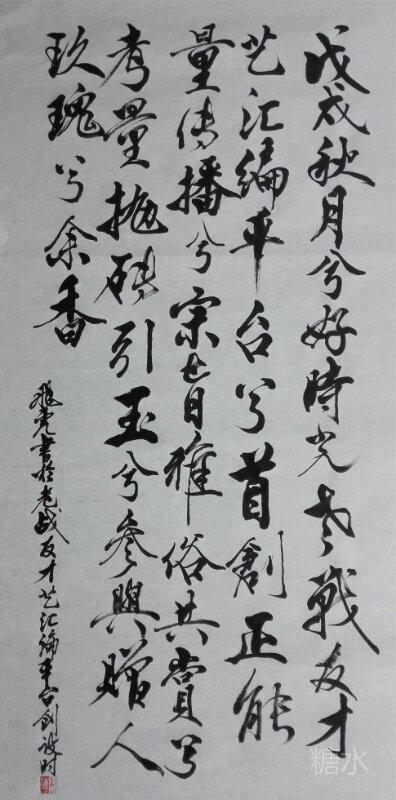 戊戌秋月兮好時光老戰友才
艺汇编平台兮首創正能
量传播兮宗旨雅俗共賞兮
考量抛砖引玉兮参與赠人
玫瑰兮余香
書於老战友才艺汇编平台創設时
糖水